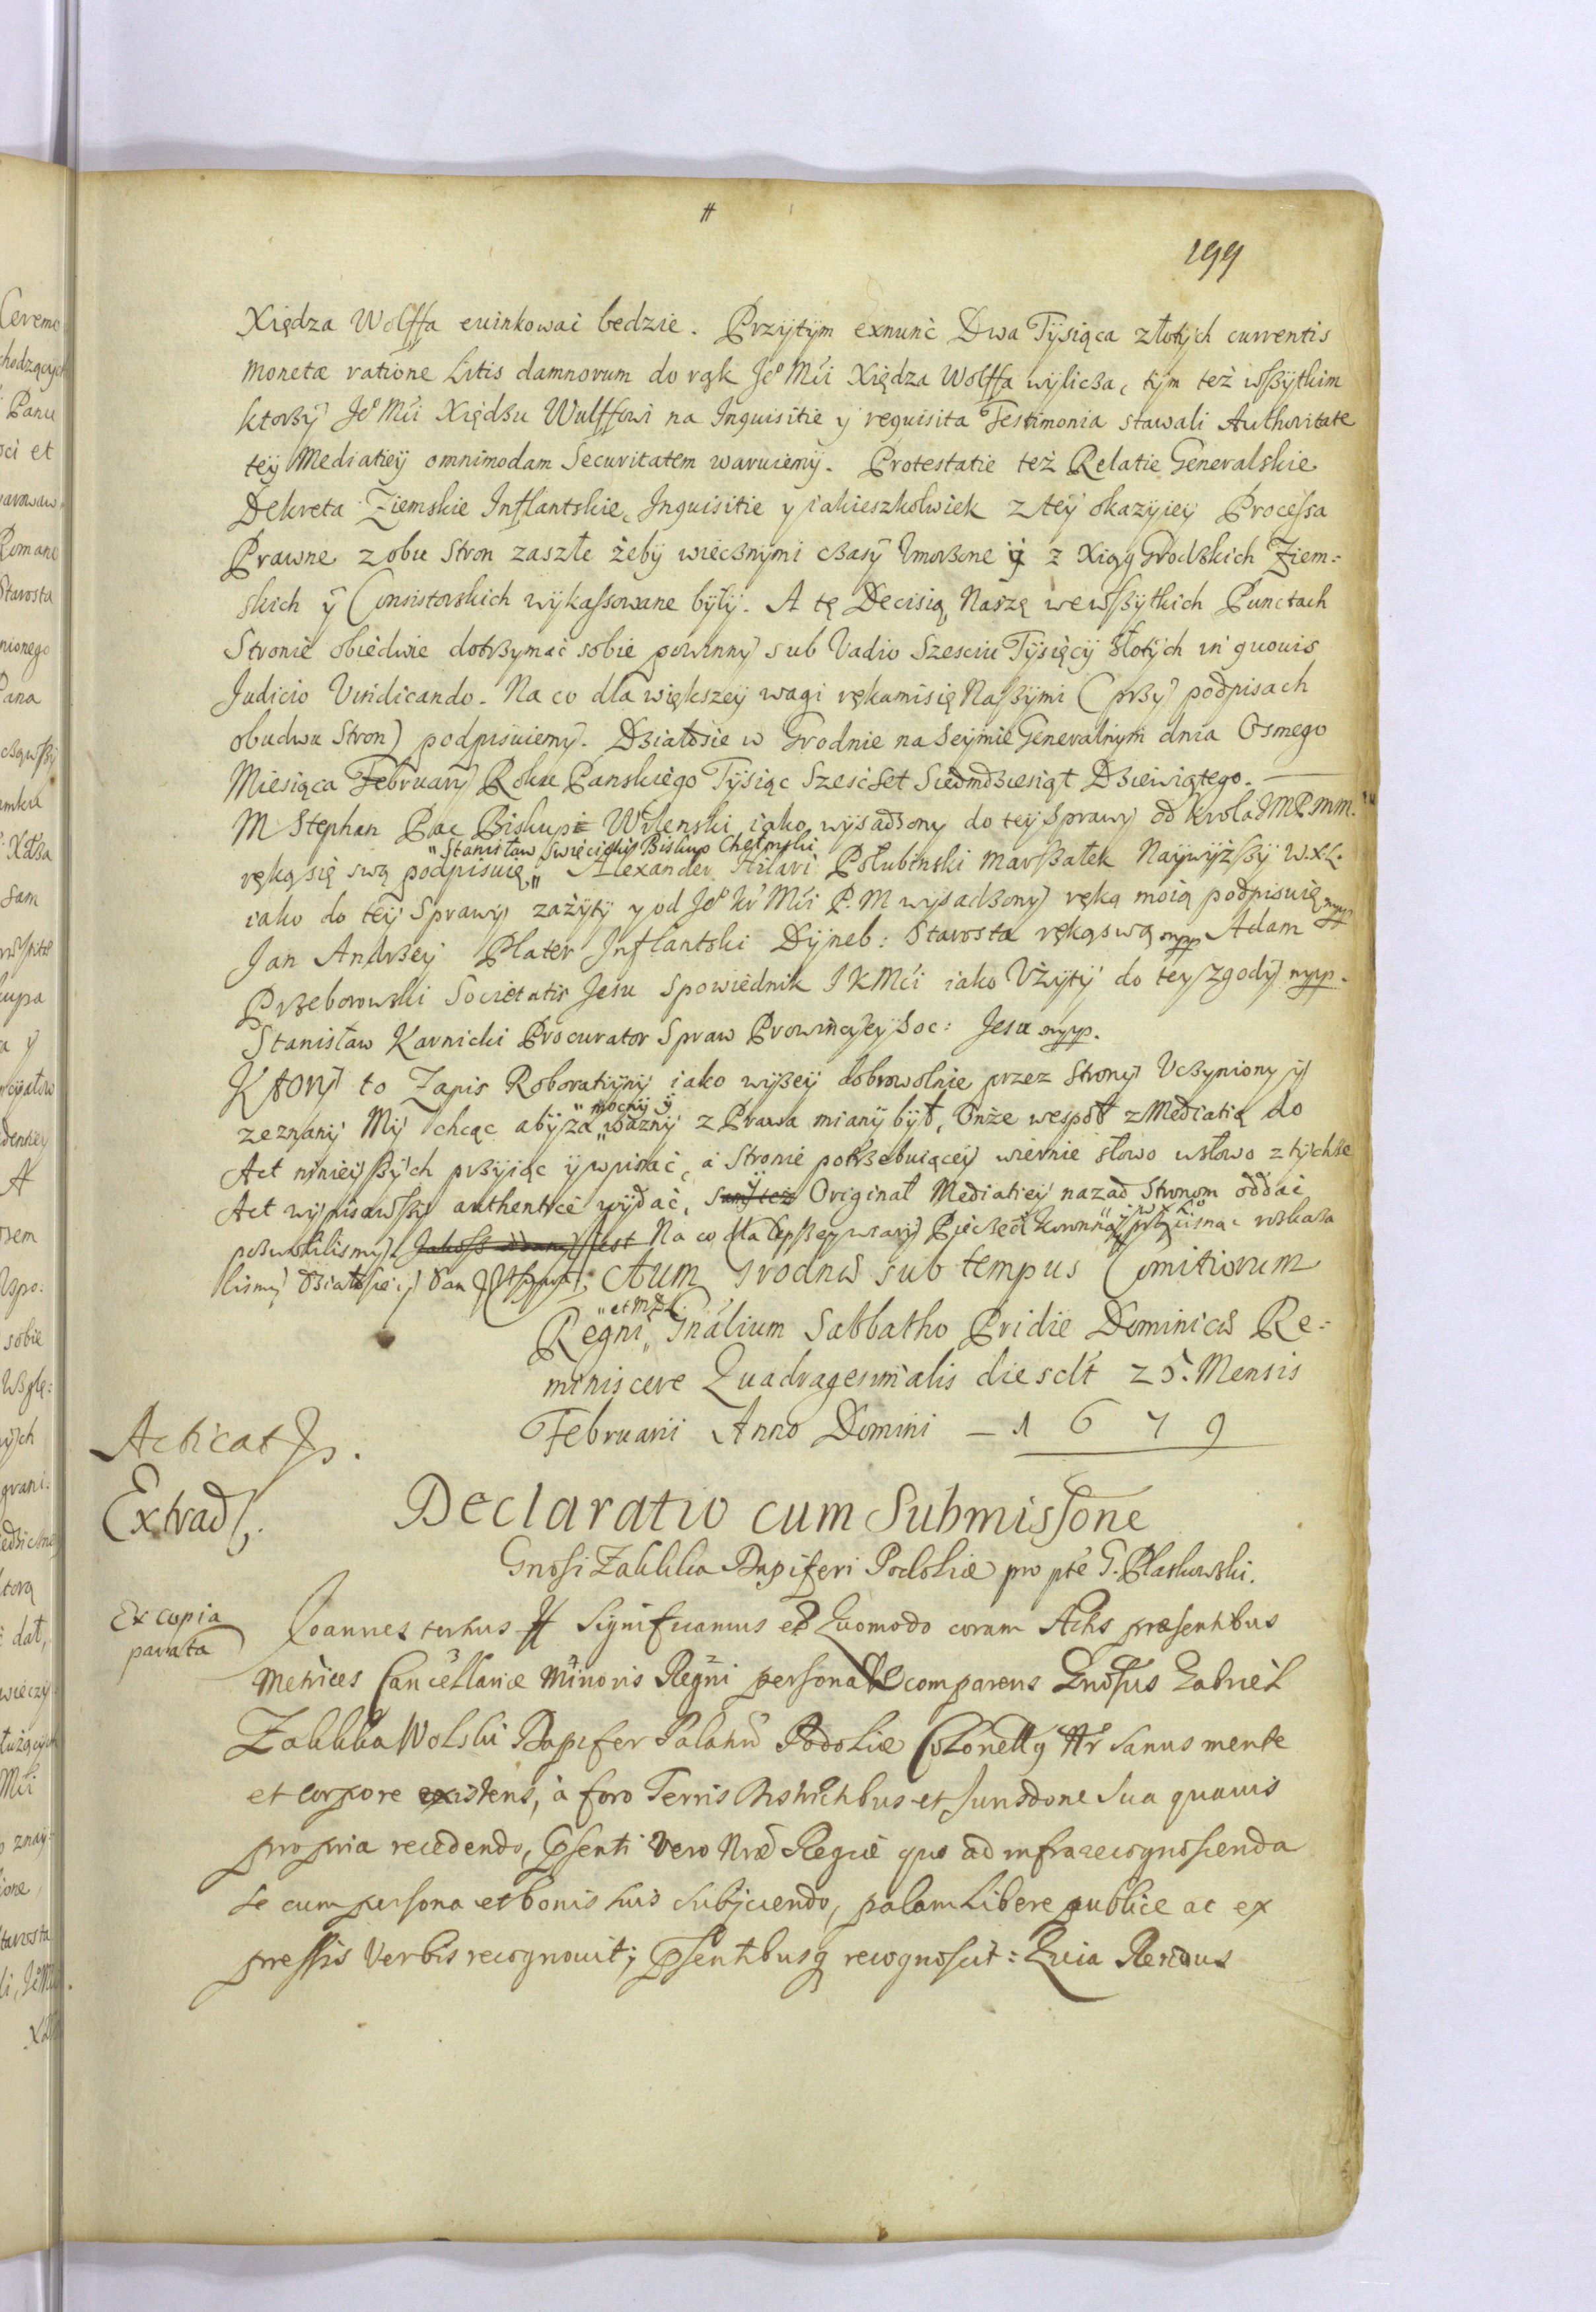 #
199
Xiędza Wolffa evinkować bedzie. Przytym exnunc Dwa Tysiąca złotych currentis
monetæ ratione Litis damnorum do rąk Jeo Mći Xiędza Wolffa wyliczа, tym też wszytkim
ktorzy Jeo Mći Xiędzu Wulffowi na Inquisitie y requisita Testimonia stawali Authoritate
tey Mediatiey omnimodam Securitatem waruiemy. Protestatie też Relatie Generalskie
Dekreta Ziemskie Inflantskie, Inquisitie y iakieszkolwiek z tey okazyiey Processa
Prawne z obu Stron zaszłe żeby wiecznymi czasy Umorzone y z Xiąg Grodzkich Ziem=
skich y Consistorskich wykassowane były. A tę Decisią Naszę we wszytkich Punctach
Stronie obiedwie dotrzymać sobie powinny sub Vadio Szesciu Tysięcy złotych in quovis
Judicio Vindicando. Na co dla większey wagi rękamisię Naszymi (przy podpisach
obudwu Stron) podpisuiemy. Działosie w Grodnie na Seymie Generalnym dnia Osmego
Miesiąca February Roku Panskiego Tysiąc Szesćset Siedmdziesiąt Dziewiątego.
M Stephan Pac Biskup Wilenski iako wysadzony do tey Sprawy od Krola JMP. mm.
"Stanisław Swięcicki Biskup Chełmski
ręką się swą podpisuię" Alexander Hilari Połubinski Marszałek Naywyższy W.X.L.
iako do tey Sprawy zażyty y od Jeo Kr Mći P. M wysadzony ręką moią podpisuię mpp
Jan Andrzey Plater Inflantski Dyneb: Starosta ręką swą mpp Adam
Przeborowski Societatis Jesu Spowiednik J K Mći iako Użyty do tey zgody mpp.
Stanisław Karnicki Procurator Spraw Prowincyey Soc: Jesu mpp.
Ktory to Zapis Roboratiyny iako wyzey dobrowolnie przez Strony Uczyniony y
"mocny y
zeznany My chcąc aby za "ważny z Prawa miany był, Onże wespoł z Mediatią do
Act ninieyszych przyiąc y wpisać, a Stronie potrzebuiącey wiernie słowo wsłowo z tychże
Act wypisawszy authentice wydać, samy też Original Mediatiey nazad Stronom oddać
pozwolilismy. Jakosz oddany iest Na co dla lepszey wiary Pieczęć Koronną przycisnąć rozkaza
lismy Działosie y Dan Actum Grodnæ sub tempus Comitiorum
"et MDL.
Regni "Gnalium Sabbatho Pridie Dominicæ Re=
miniscere Quadragesimalis die sclt 25. Mensis
Februarii Anno Domini — 1 6 7 9
Acticat
Extrad
Declaratio cum Submissione
Gnosi Zaklika Dapiferi Podoliæ pro pte G. Płaskowski.
Ex copia
parata
Joannes tertius Significamus et Quomodo coram Actis præsentibus
Metrices Cancellariæ Minoris Regni personaliter comparens Gnosus Gabriel
Zaklika Wolski Dapifer Palatnũ Podoliæ Colonellq sanus mente
et corpore existens, à foro Terris Districtibus et Jurisdone sua quavis
propria recedendo, psenti vero Nræ Regiæ quo ad infra recognoscenda
se cum persona et bonis suis subjiciendo, palam libere publice ac ex
pressis verbis recognovit; psentibusq recognoscit: Quia Rendus